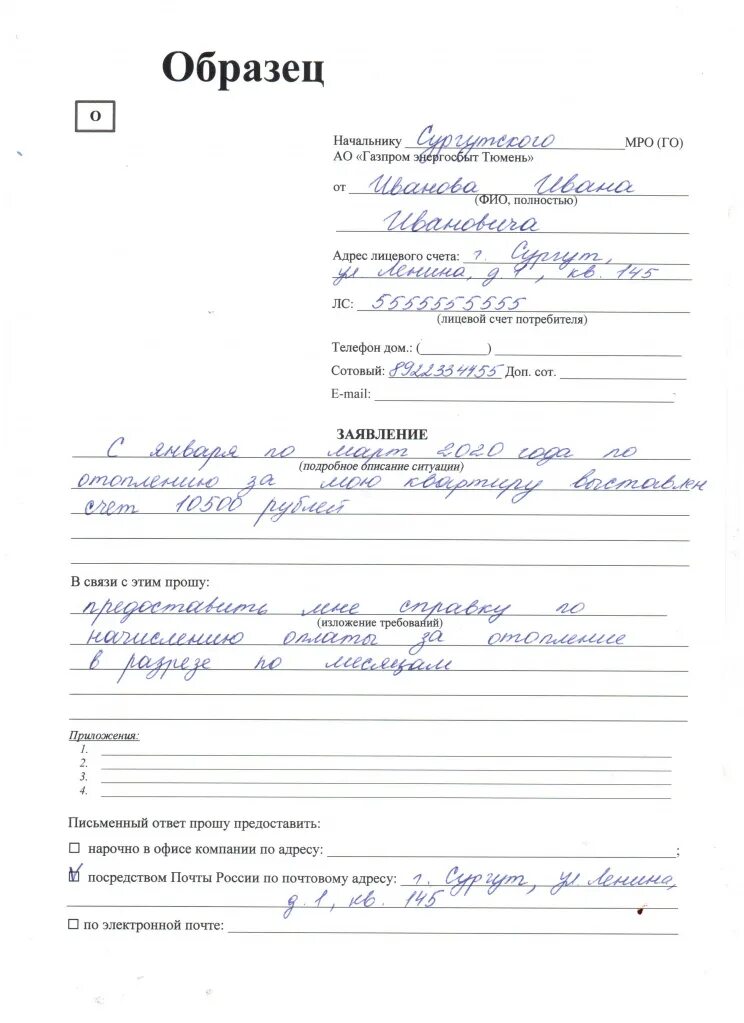 Образец
О
Начальнику Сургутского МРО (ГО)
АО «Газпром энергосбыт Тюмень»
от Иванова Ивана
(ФИО, полностью)
Ивановича
Адрес лицевого счета: г. Сургут,
ул Ленина, д. 1, кв. 145
ЛС: 5555555555
(лицевой счет потребителя)
Телефон дом.: (__________)
Сотовый: 8922334455 Доп. сот.
E-mail:
ЗАЯВЛЕНИЕ
С января по март 2020 года по
(подробное описание ситуации)
отоплению за мою квартиру выставлен
счет 10500 рублей
В связи с этим прошу:
предоставить мне справку по
(изложение требований)
начислению оплаты за отопление
в разрезе по месяцам
Приложения:
1.
2.
3.
4.
Письменный ответ прошу предоставить:
☐ нарочно в офисе компании по адресу: ;
☑ посредством Почты России по почтовому адресу: г. Сургут, ул. Ленина,
д. 1, кв. 145
☐ по электронной почте: